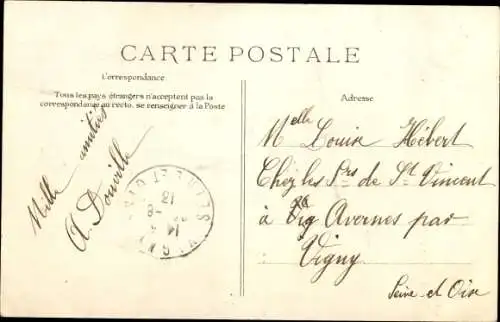 CARTE POSTALE
Correspondance
Tous les pays étrangers n'acceptent pas la
correspondance au recto, se renseigner à la Poste
Mille amitiés
A. Douville
SEINE-ET-OISE
13
Adresse
Melle Louise Hébert
Chez les Srs de St Vincent
à Avernes par
Vigny
Seine et Oise